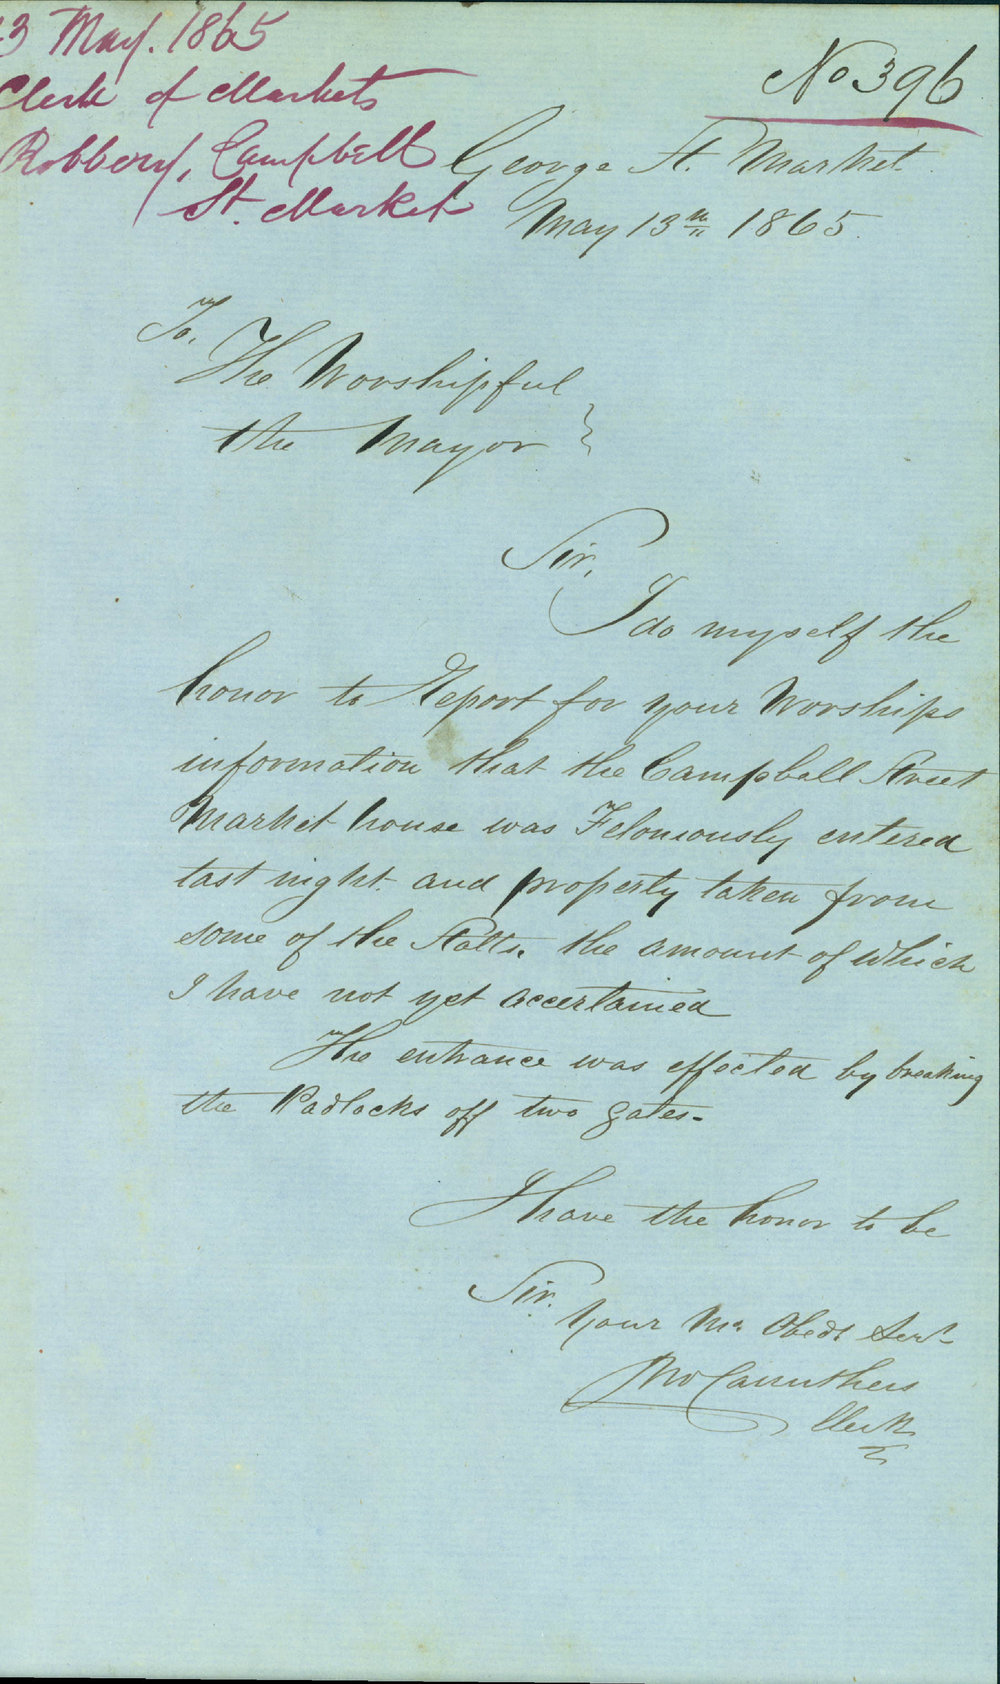 13 May. 1865
Clerk of Markets
Robbery, Campbell
St. Market
No 396
George St. Market
May 13th 1865.
To,
The Worshipful
the Mayor
Sir,
I do myself the
honor to Report for your Worships
information that the Campbell Street
Market house was Feloniously entered
last night. and property taken from
some of the Stalls. the amount of which
I have not yet accertained
The entrance was effected by breaking
the Padlocks off two gates-
I have the honor to be
Sir.
Your Mo. Obedt Servt
Jno Carruthers
Clerk